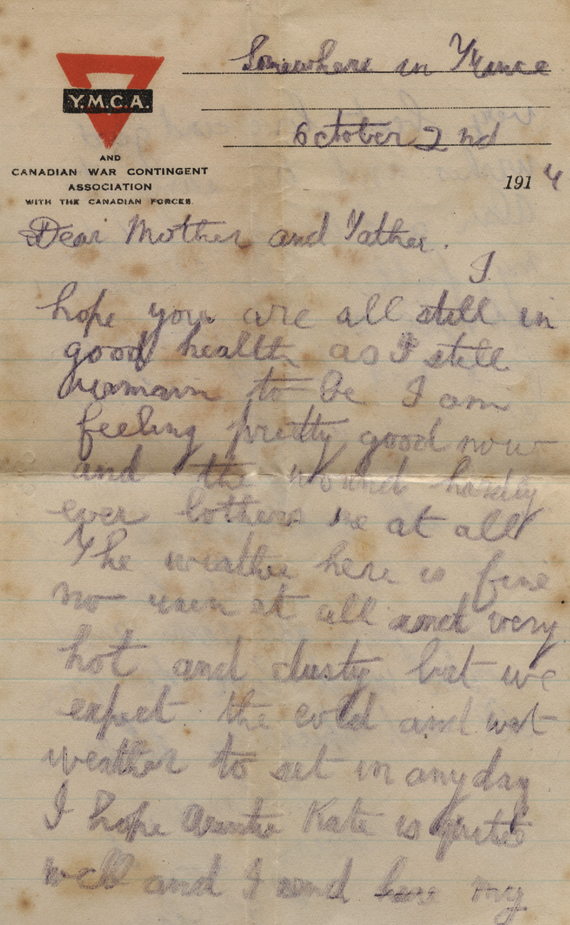 Somewhere in France
Y.M.C.A.
October 2nd
AND
CANADIAN WAR CONTINGENT
ASSOCIATION
WITH THE CANADIAN FORCES.
1914
Dear Mother and Father.
I
hope you are all still in
good health as I still
remain to be I am
feeling pretty good now
and the wound hardly
ever bothers me at all
The weather here is fine
no rain at all and very
hot and dusty but we
expect the cold and wet
weather to set in any day
I hope Auntie Kate is quite
well and I send here my